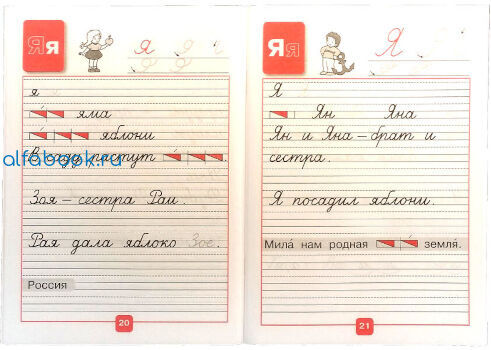 Яя
я
я
яма
яблони
В саду растут .
alfabook.ru
Зоя – сестра Раи.
Рая дала яблоко Зое.
Россия
20
Яя
Я
Я
Ян Яна
Ян и Яна – брат и
сестра.
Я посадил яблони.
Мила́ нам родная земля́.
21